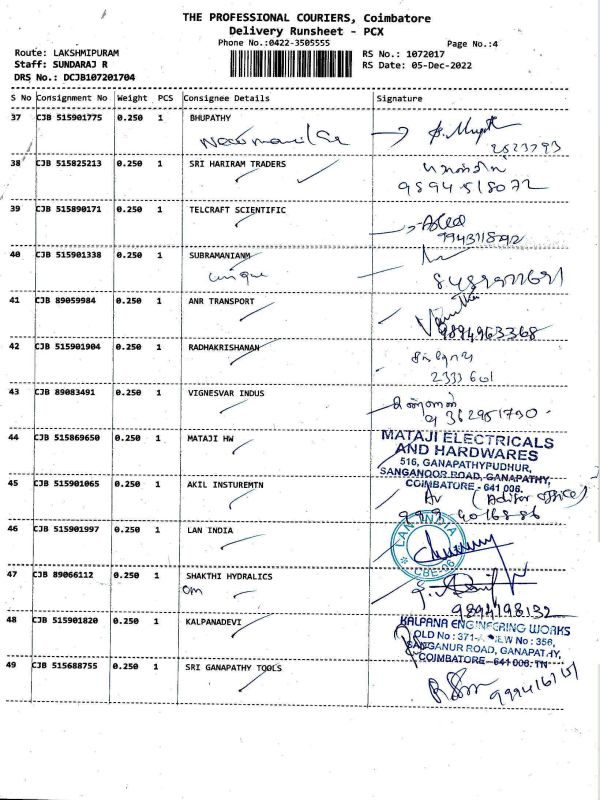 THE PROFESSIONAL COURIERS, Coimbatore
Delivery Runsheet - PCX
Phone No.:0422-3505555
Page No.:4
Route: LAKSHMIPURAM
RS No.: 1072017
Staff: SUNDARAJ R
RS Date: 05-Dec-2022
DRS No.: DCJB107201704
S No Consignment No Weight PCS Consignee Details Signature
37 CJB 515901775 0.250 1 BHUPATHY
38 CJB 515825213 0.250 1 SRI HARIRAM TRADERS
9894518072
39 CJB 515890171 0.250 1 TELCRAFT SCIENTIFIC
40 CJB 515901338 0.250 1 SUBRAMANIANM
unique
41 CJB 89059984 0.250 1 ANR TRANSPORT
9894963368
42 CJB 515901904 0.250 1 RADHAKRISHANAN
43 CJB 89083491 0.250 1 VIGNESVAR INDUS
44 CJB 515869650 0.250 1 MATAJI HW
MATAJI ELECTRICALS
AND HARDWARES
516, GANAPATHYPUDHUR,
SANGANOOR ROAD, GANAPATHY,
COIMBATORE - 641 006.
45 CJB 515901065 0.250 1 AKIL INSTUREMTN
46 CJB 515901997 0.250 1 LAN INDIA
LAN INDIA
CBE-06
47 CJB 89066112 0.250 1 SHAKTHI HYDRALICS
om
9894198132
48 CJB 515901820 0.250 1 KALPANADEVI
KALPANA ENGINEERING WORKS
OLD No : 371-A, NEW No : 356,
SANGANUR ROAD, GANAPATHY,
COIMBATORE - 641 006. TN
49 CJB 515688755 0.250 1 SRI GANAPATHY TOOLS